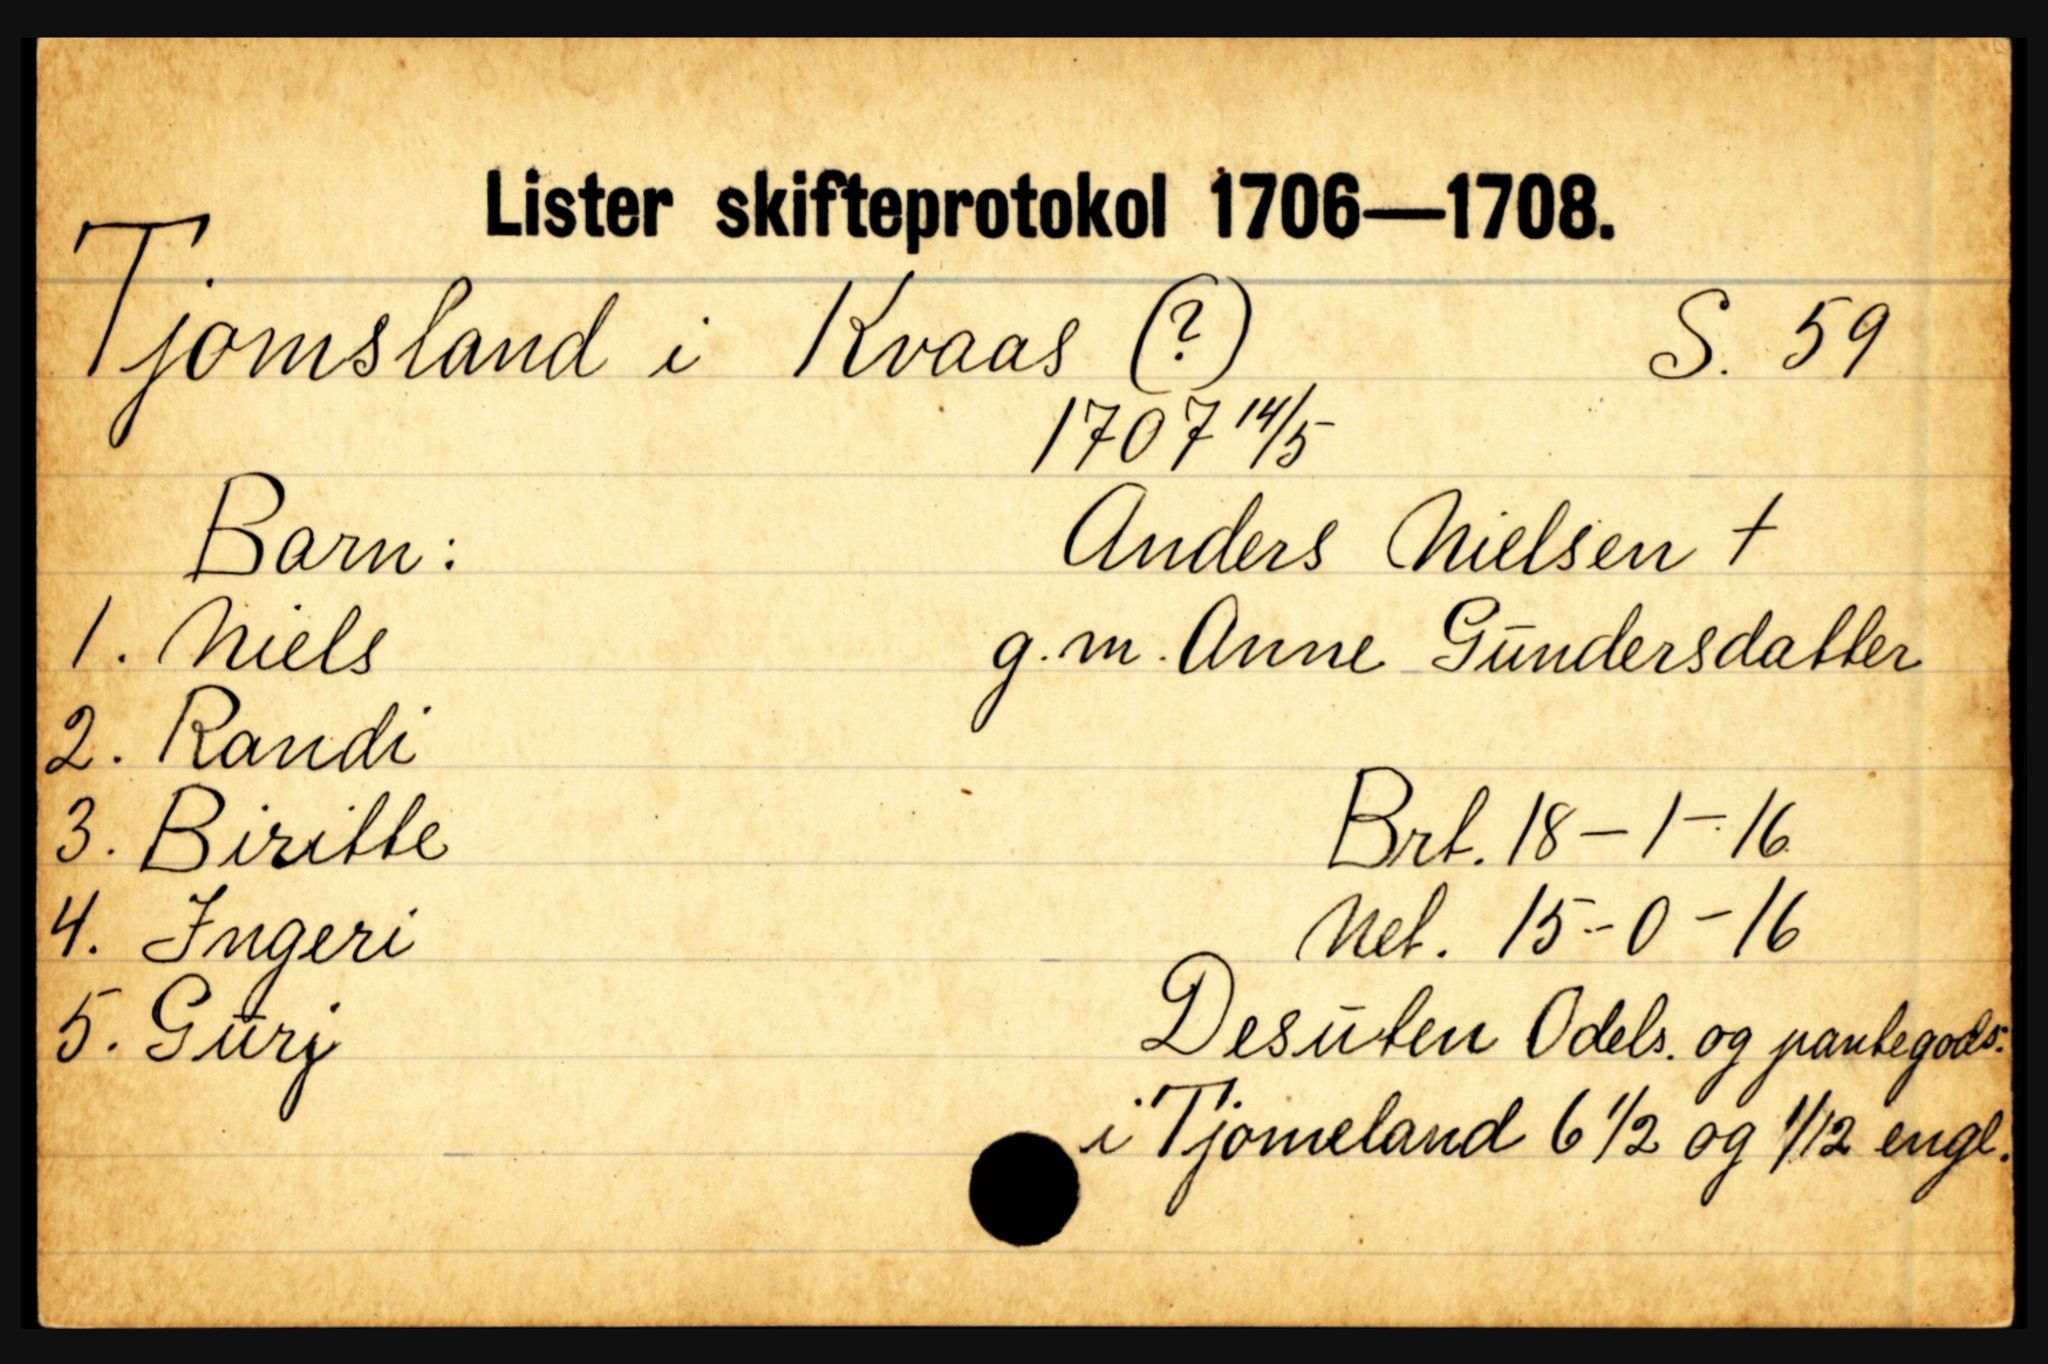 Lister skifteprotokol 1706—1708.
Tjomsland i Kvaas (?) S. 59
1707 14/5
Barn: Anders Nielsen †
1. Niels g.m. Anne Gūndersdatter
2. Randi
3. Biritte Brt. 18 - 1 - 16
4. Ingeri Net. 15 - 0 - 16
5. Gūrj Desūten Odels. og pantegods.
i Tjomeland 6 1/2 og 1/12 engl.